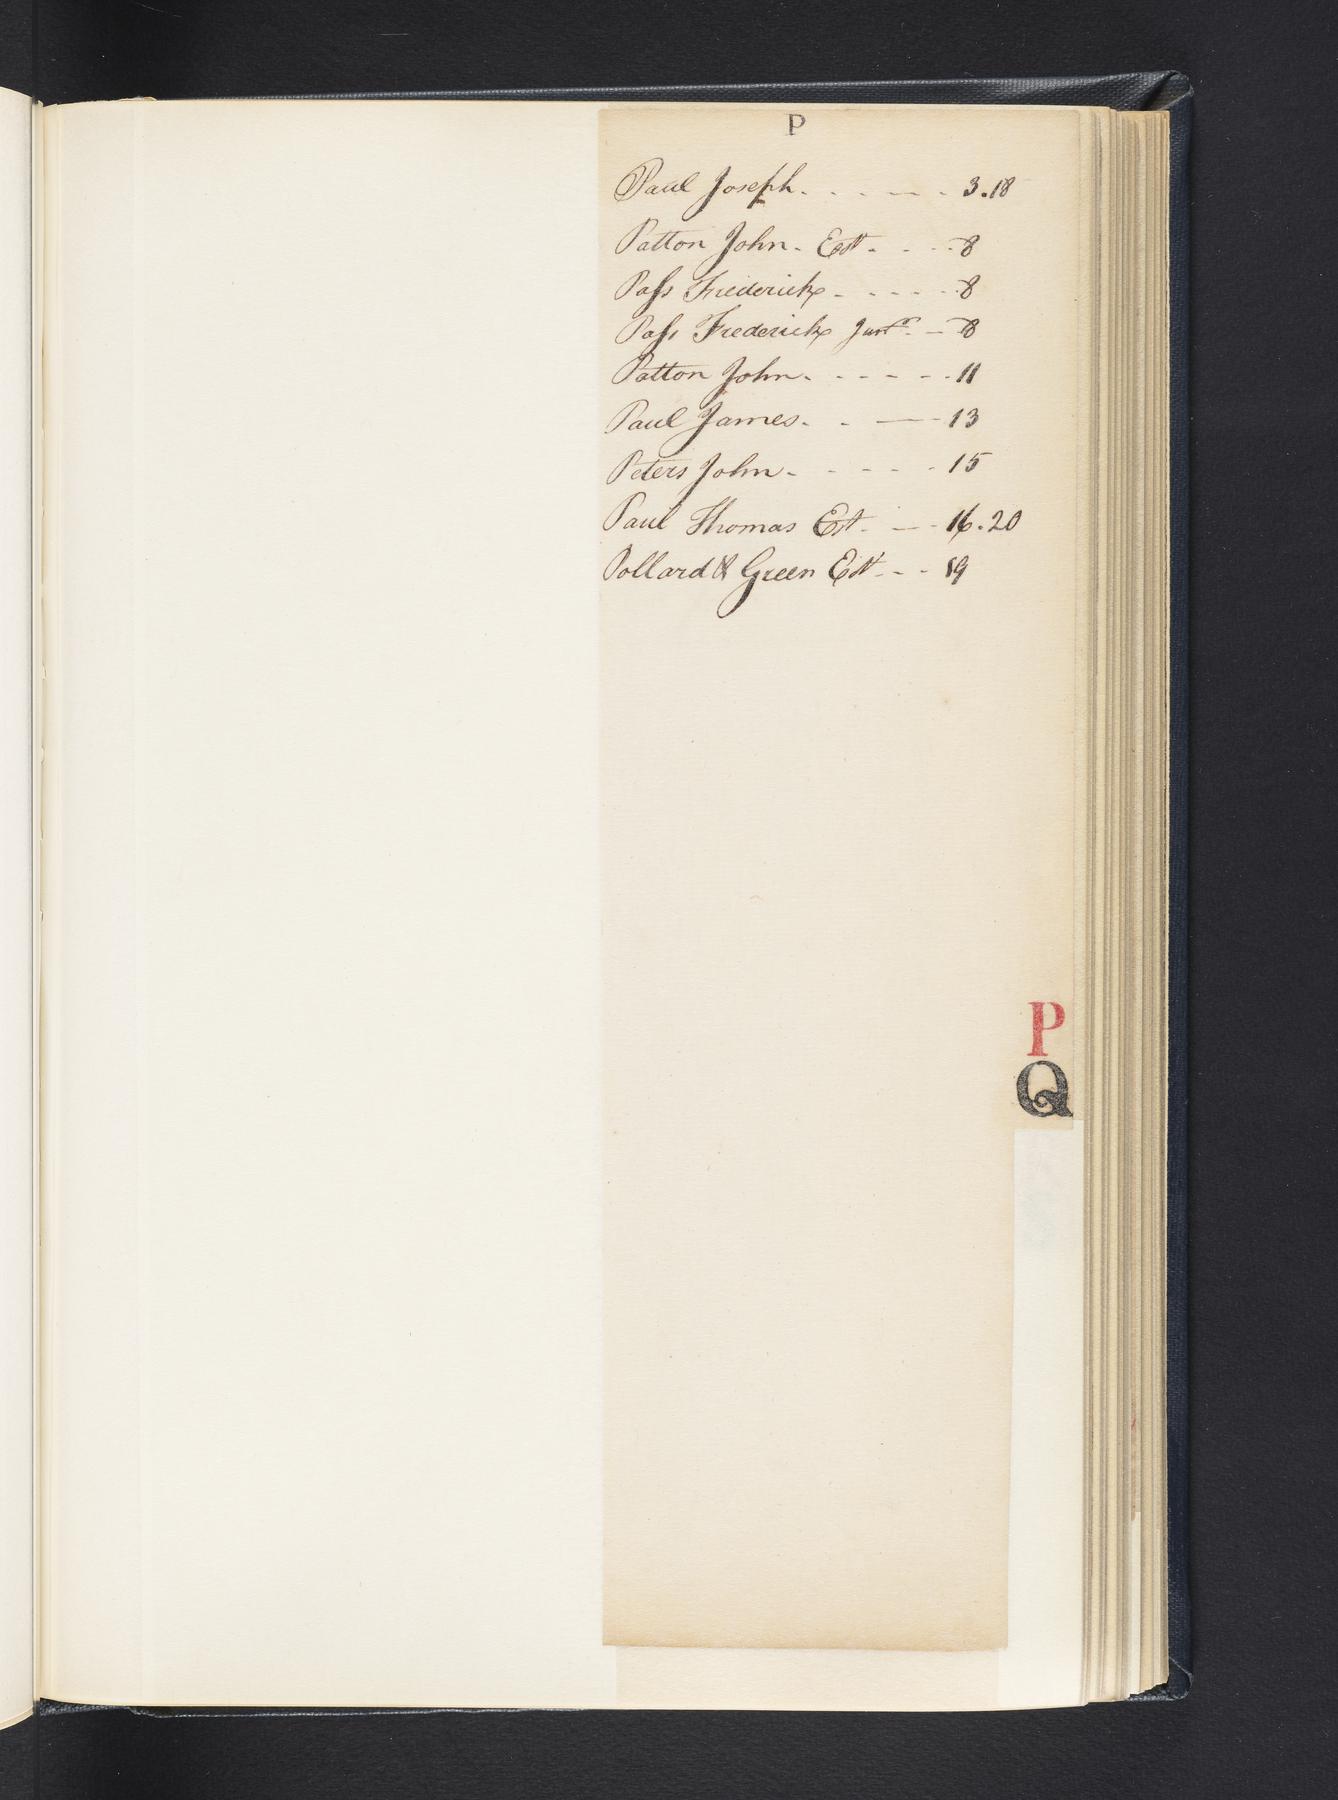 P
Paul Joseph. - - - - . 3.18
Patton John. Est. - - - 8
Pass Frederick - - - - - 8
Pass Frederick Junr. - - 8
Patton John. - - - - - 11
Paul James. - — - 13
Peters John - - - - - 15
Paul Thomas Est. - — - 16.20
Pollard & Green Est - - - 19
P
Q